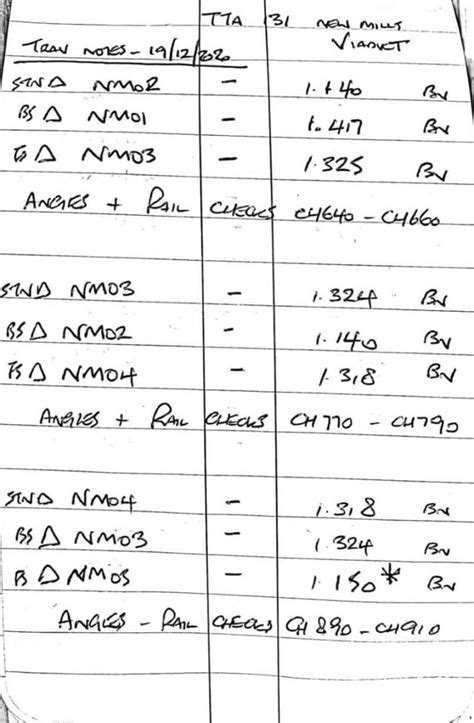 TTA 131 NEW MILLS
TRAV NOTES - 19/12/2020 VIADUCT
STND Δ NM02 - 1.140 BN
BS Δ NM01 - 1.417 BN
FS Δ NM03 - 1.325 BN
ANGLES + RAIL CHECKS CH640 - CH660
STND NM03 - 1.324 BN
BS Δ NM02 - 1.140 BN
FS Δ NM04 - 1.318 BN
ANGLES + RAIL CHECKS CH770 - CH790
STND NM04 - 1.318 BN
BS Δ NM03 - 1.324 BN
FS Δ NM05 - 1.150* BN
ANGLES - RAIL CHECKS CH890 - CH910